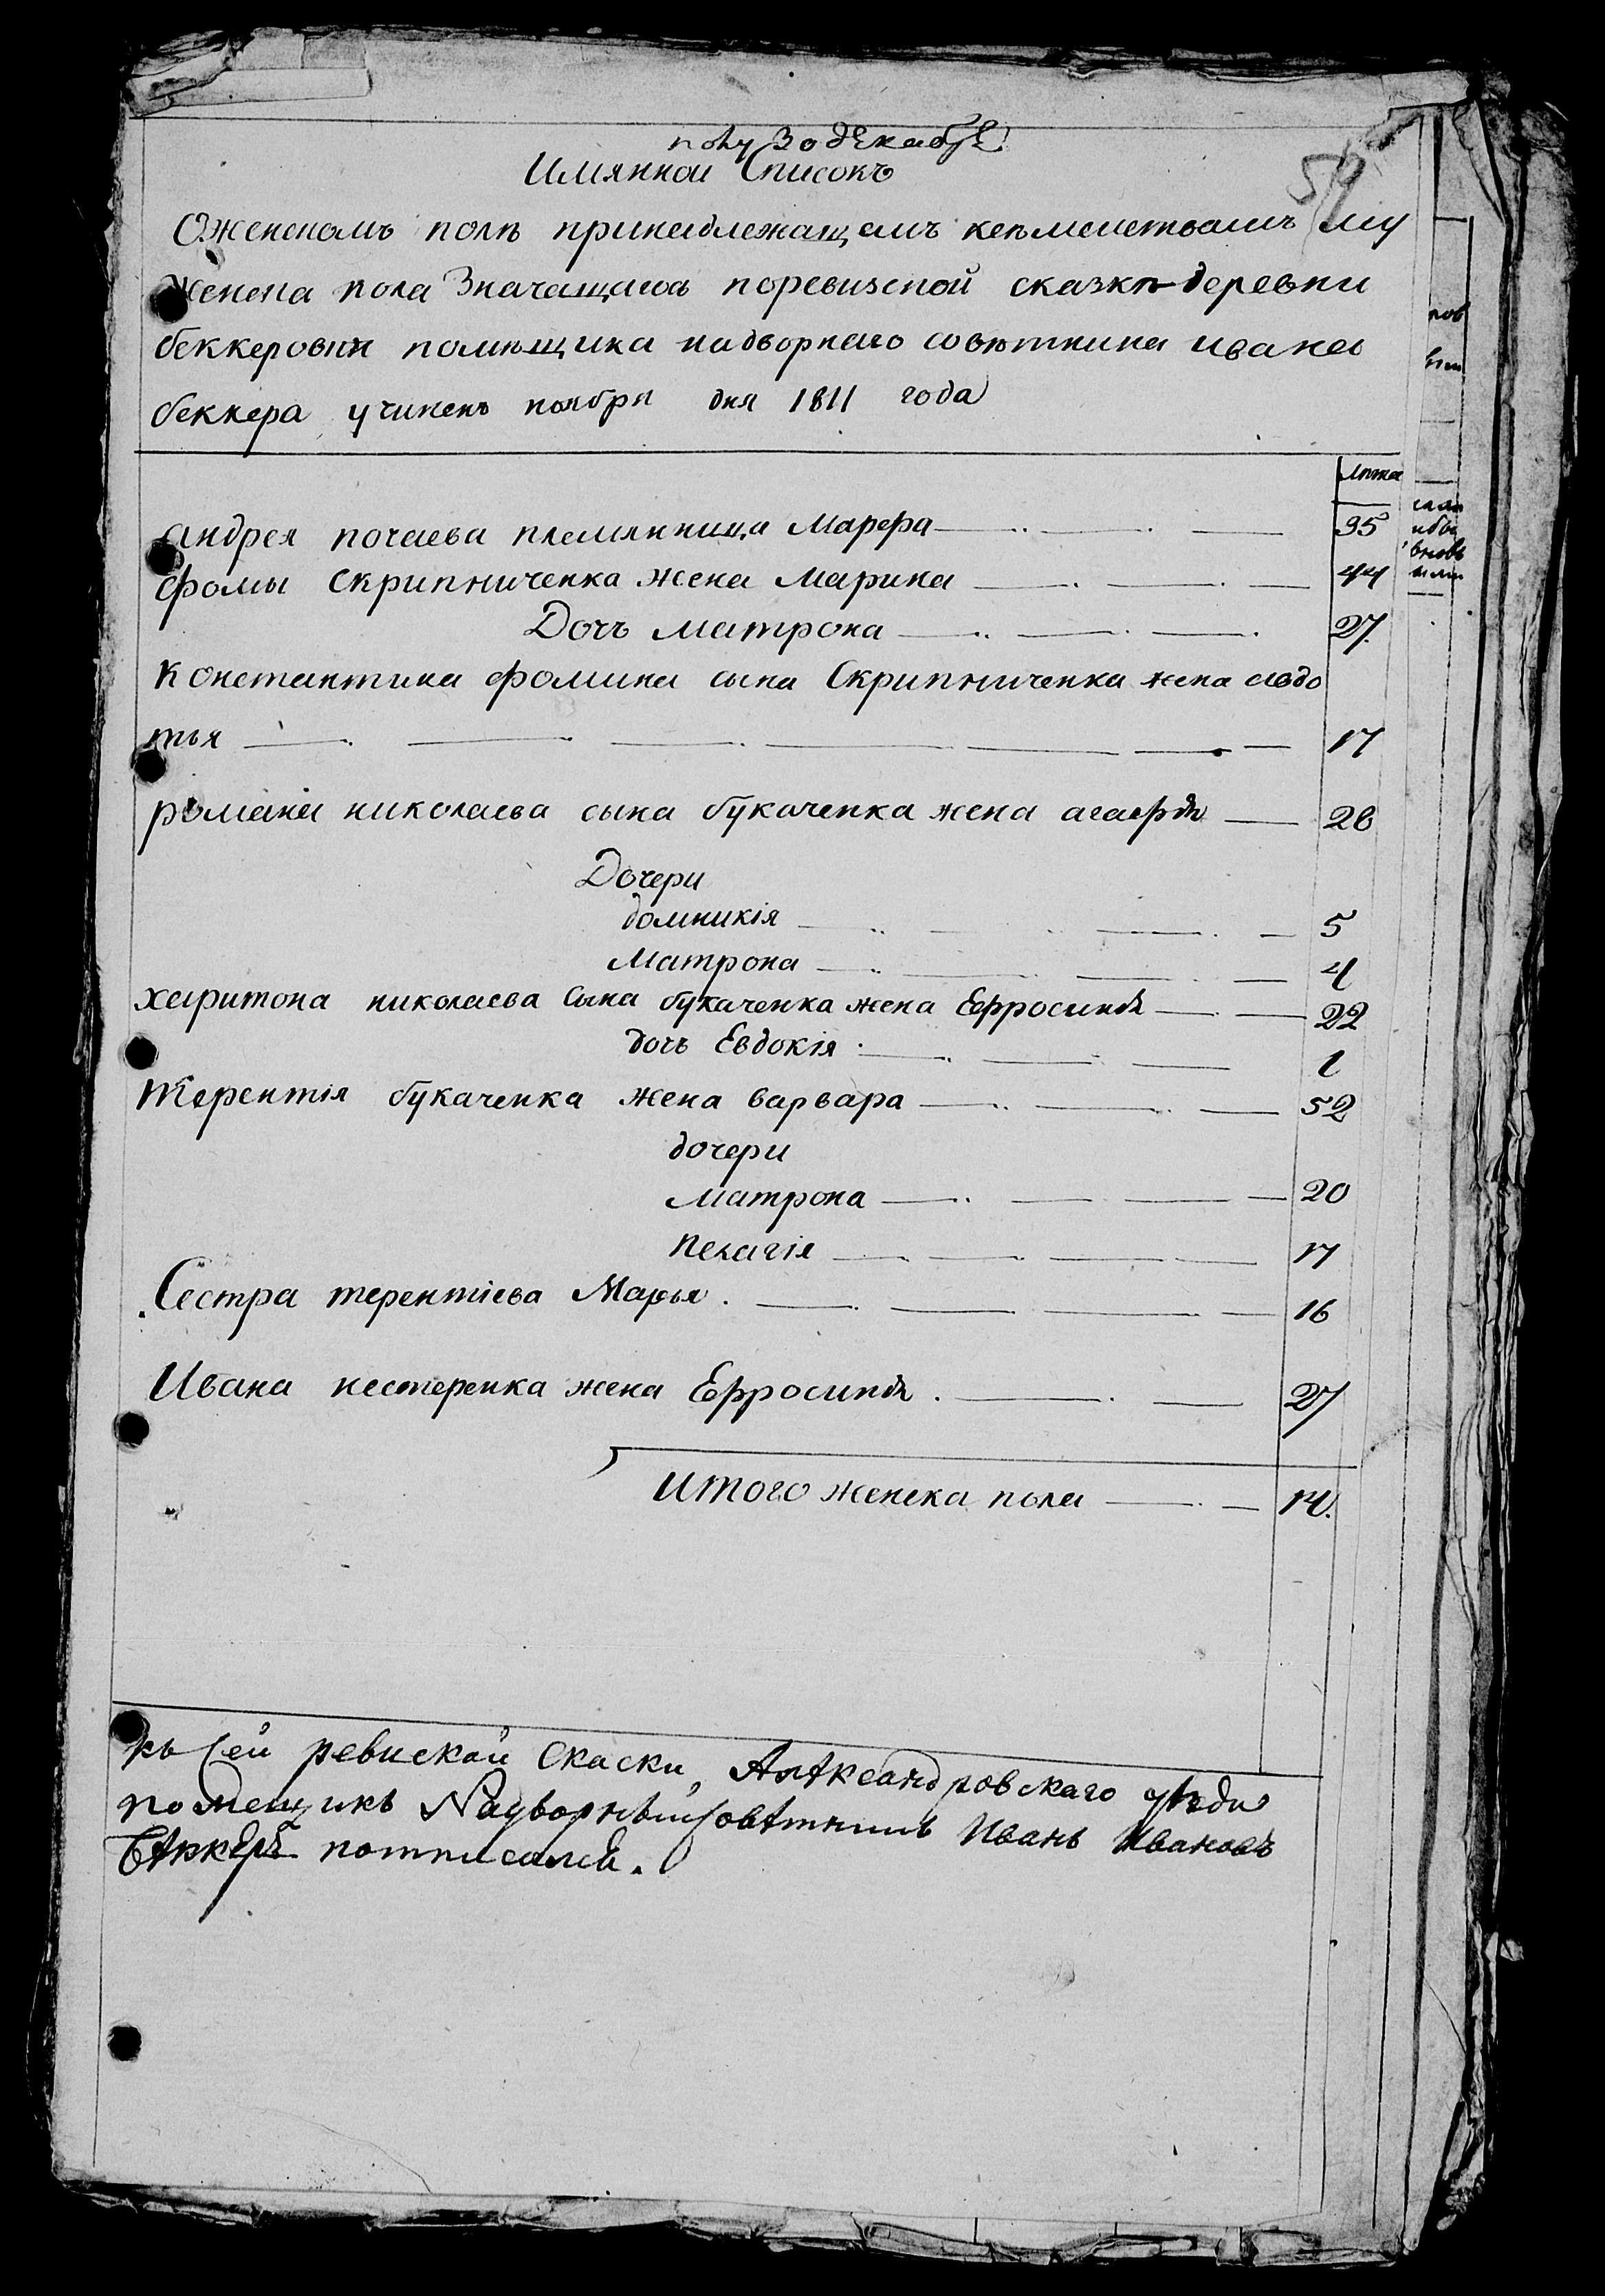 полу 30 декабре
59
Имянной Списокъ
О женскомъ поле принадлежащемъ
женска пола значащагося поревизской сказки деревни
беккеровки помѣщика надворнаго совѣтника ивана
беккера учиненъ ноября дня 1811 года
лѣта
андрея почаева племянница Марфа 35
фомы Скрипниченка жена Марина 44
Дочъ матрона 27
Константина фомина сына Скрипниченка жена авдо
тья 17
романа николаева сына букаченка жена агафья 28
Дочери
домникія 5
Матрона 4
харитона николаева Сына букаченка жена Ефросинья 22
дочъ Евдокія 1
терентія букаченка жена варвара 52
дочери
матрона 20
пелагія 17
Сестра терентіева Марья 16
Ивана нестеренка жена Ефросинья 27
итого женска пола 14.
къ Сей ревиской Скаски Александровскаго уѣзда
помещикъ Надворный Советникъ Иванъ Ивановъ
Беккеръ потписался.